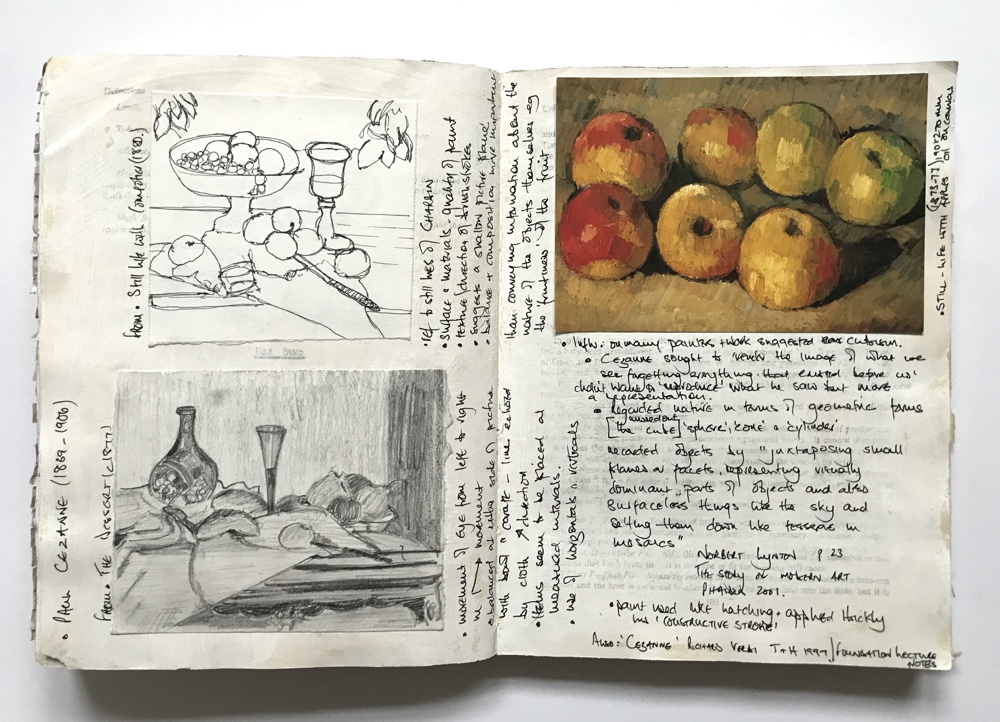 • PAUL CEZANNE (1839-1906)
FROM • Still life with compotier (1880)
FROM • THE DESSERT (c1877)
• ref to still lives of CHARDIN
• Surface + materials - quality of paint
• texture/direction of brushstrokes
• suggests a shallow picture plane
• balance + composition more important
than conveying information about the
nature of the objects themselves - eg
the 'fruitness' of the fruit
• movement of eye from left to right
in → movement
• balanced at either side of picture
with bowl + carafe - line echoed
by cloth direction
• Items seem to be placed at
measured intervals.
• use of horizontals + verticals
• STILL-LIFE WITH APPLES
(1873-77) 190x270mm
oil on canvas
• Infl: on many painters + work suggested cubism.
• Cezanne sought to 'render the image of what we
see forgetting anything that existed before us'
didn't want to 'reproduce' what he saw but more
a representation.
• Regarded nature in terms of geometric forms
[the cube] 'sphere', 'cone' + 'cylinder'
missed out
recorded objects by "juxtaposing small
planes or facets, representing visually
dominant parts of objects and also
surfaceless things like the sky and
setting them down like tesserae in
mosaics"
NORBERT LYNTON P 23
THE STORY OF MODERN ART
PHAIDON 2001.
• paint used like hatching + applied thickly
his 'CONSTRUCTIVE STROKE'
ALSO: 'CEZANNE' RICHARD VERDI T+H 1997/FOUNDATION LECTURE
NOTES